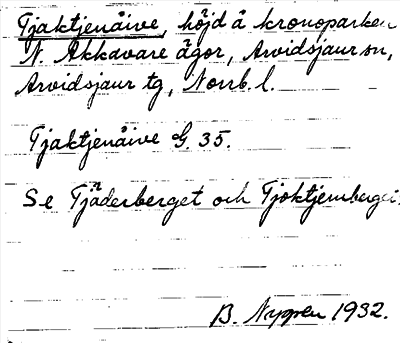 Tjaktjenåive, höjd å kronoparken
N. Akkavare ägor, Arvidsjaur sn,
Arvidsjaur tg, Norrb. l.
Tjaktjenåive G. 35.
Se Tjäderberget och Tjoktjernberget.
B. Nygren 1932.